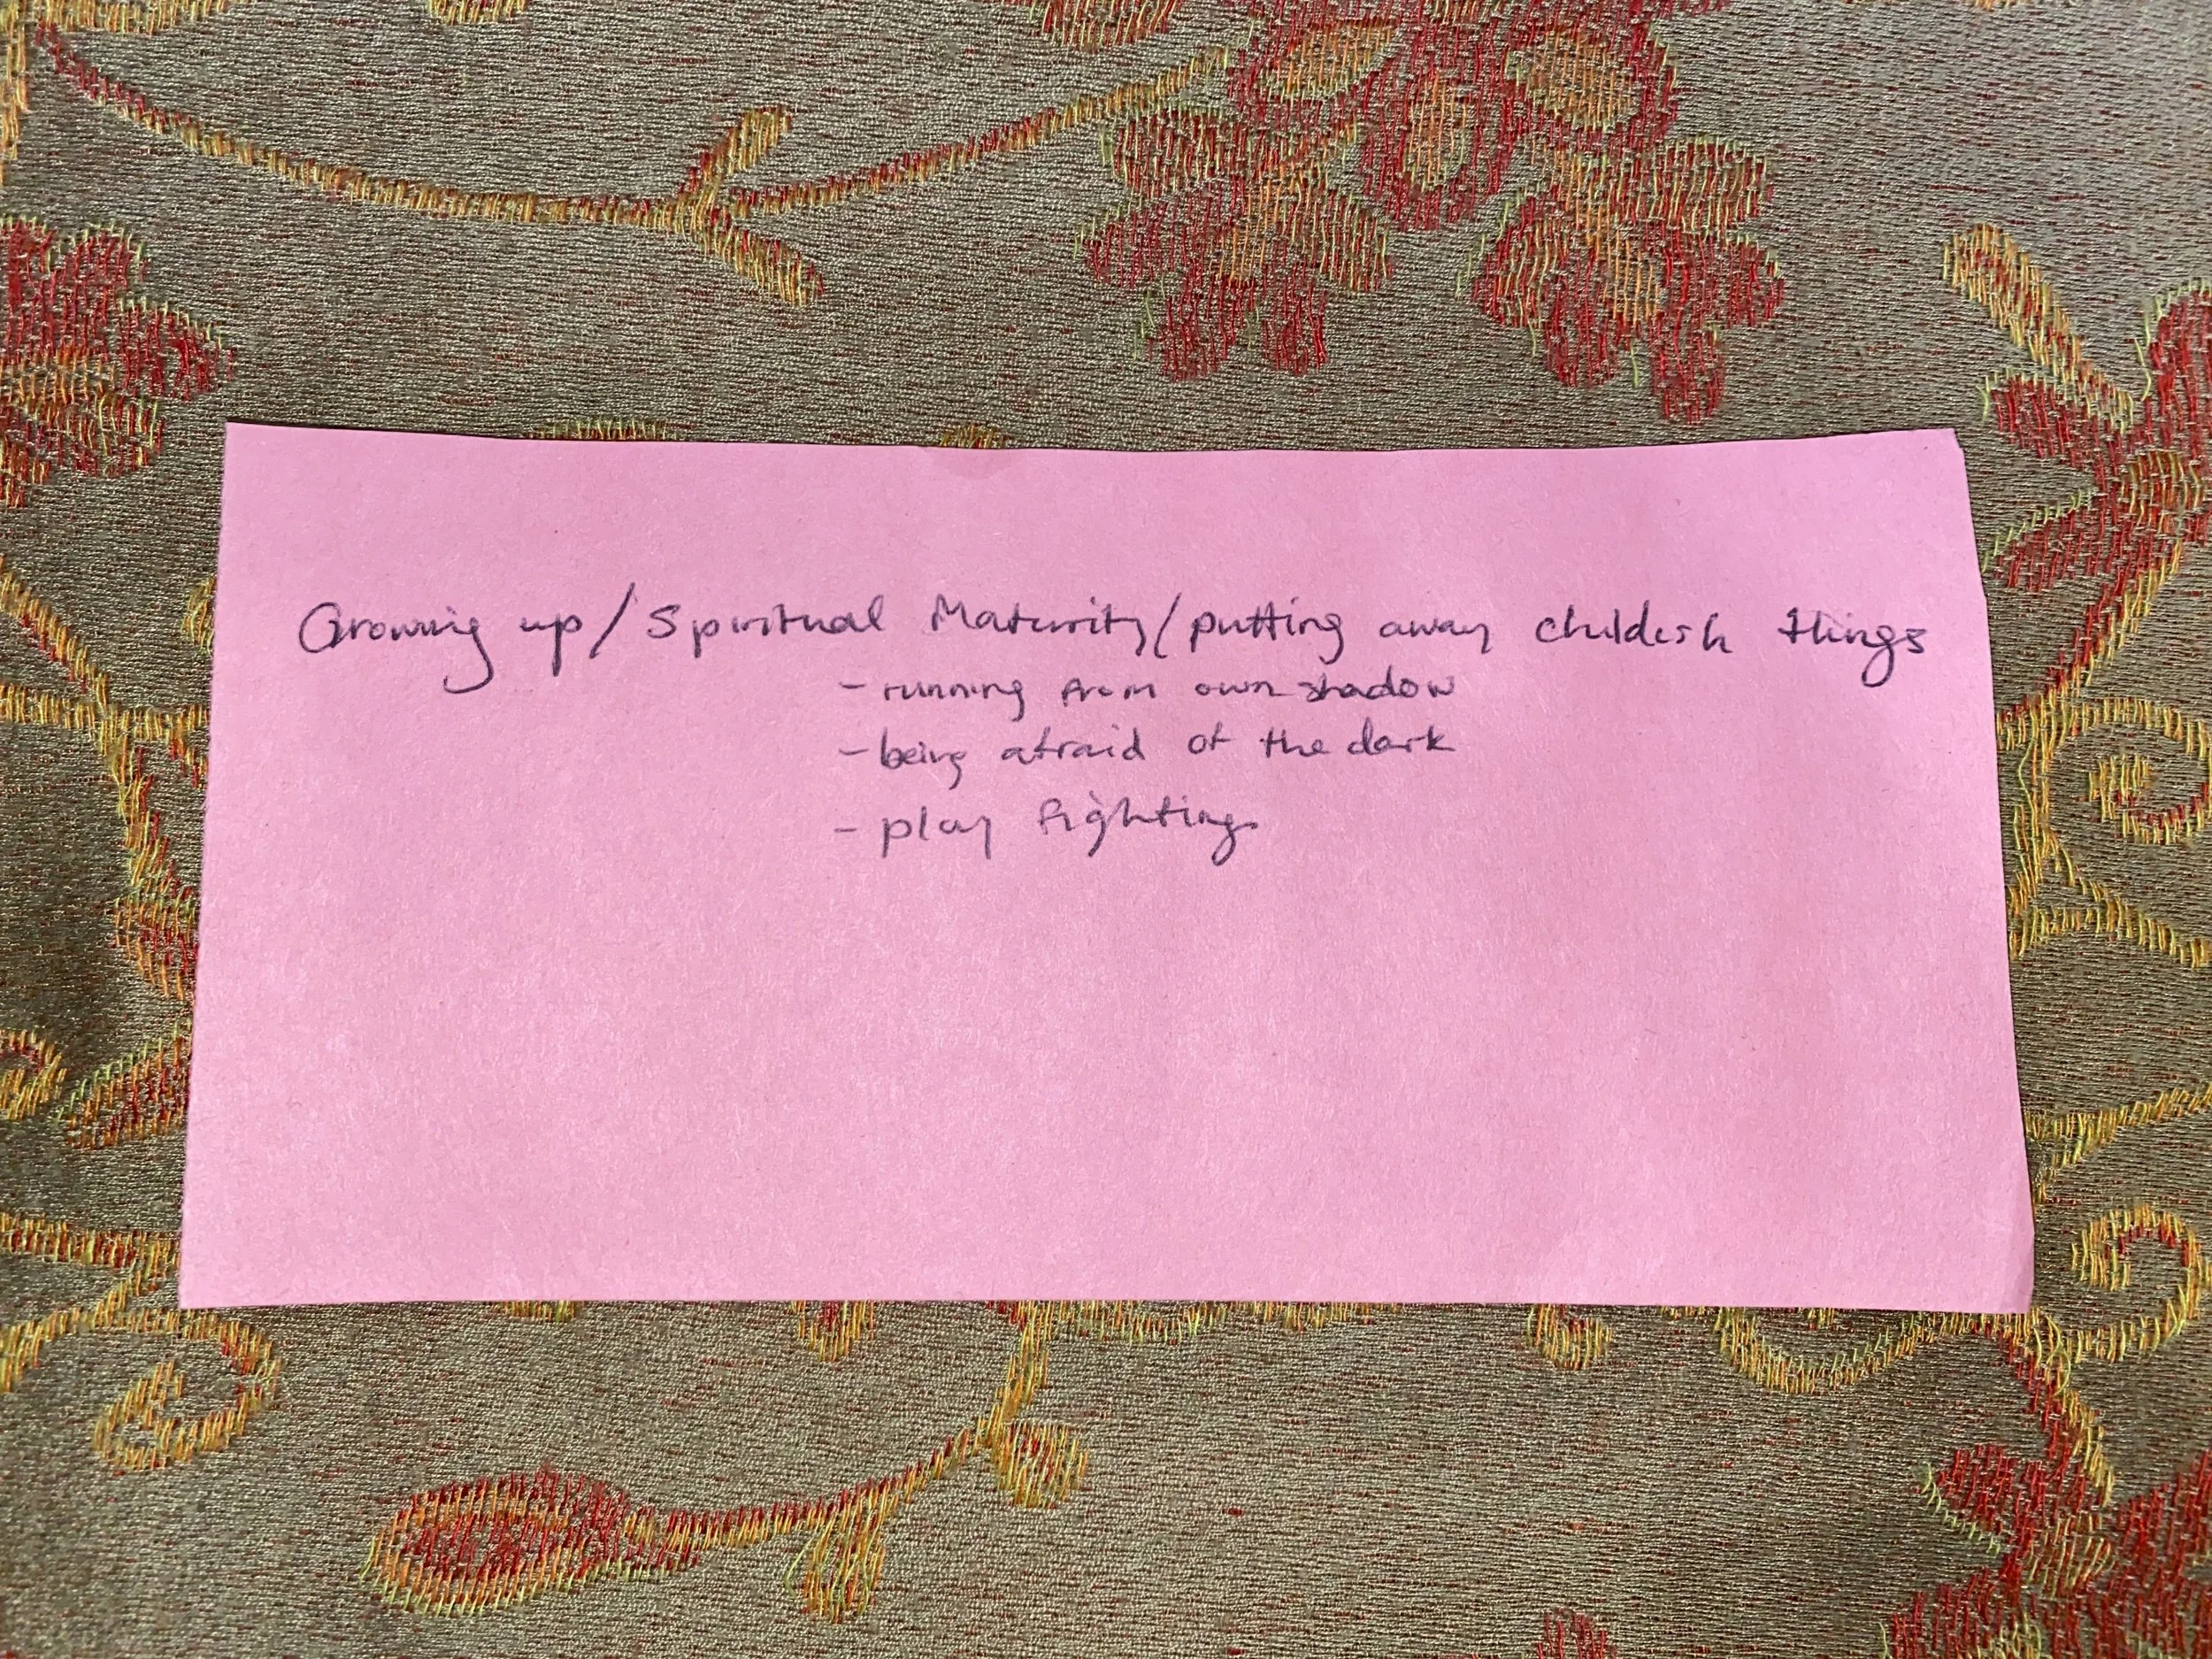 Growing up/Spiritual Maturity/putting away childish things
- running from own shadow
- being afraid of the dark
- play fighting